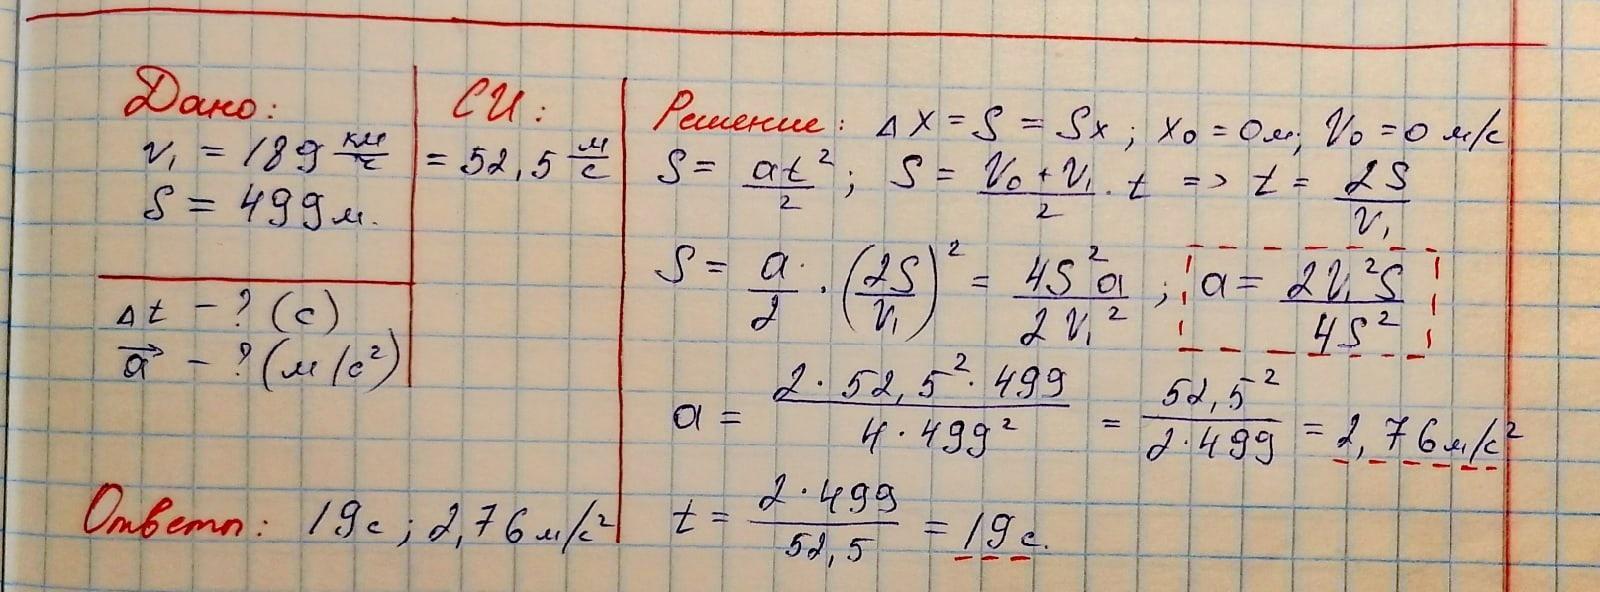 Дано:
v₁ = 189 км/ч
S = 499 м.
Δt - ? (с)
a⃗ - ? (м/с²)
СИ:
= 52,5 м/с
Решение: Δx = S = Sx; x₀ = 0 м; V₀ = 0 м/с
S = at²/2; S = (V₀ + V₁)/2 · t => t = 2S/V₁
S = a/2 · (2S/V₁)² = 4S²a/2V₁²; a = 2V₁²S/4S²
a = 2·52,5²·499/4·499² = 52,5²/2·499 = 2,76 м/с²
t = 2·499/52,5 = 19 с.
Ответ: 19 с; 2,76 м/с²